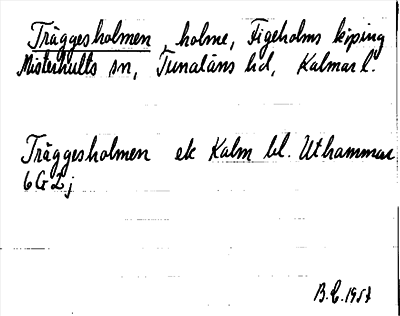 Träggesholmen, holme, Figeholms köping
Misterhults sn, Tunaläns hd, Kalmar l.
Träggesholmen ek Kalm bl. Uthammar
6G2j
B.E. 1957